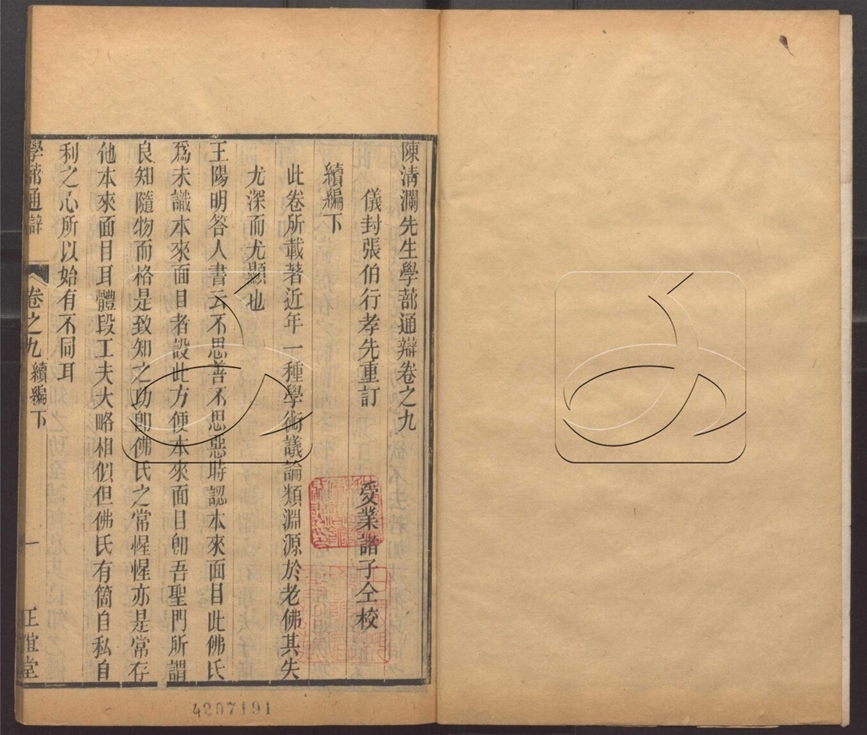 陳清瀾先生學蔀通辯卷之九
儀封張伯行孝先重訂 受業諸子仝校
續編下
此卷所載著近年一種學術議論類淵源於老佛其失
尤深而尤顯也
王陽明答人書云不思善不思惡時認本來面目此佛氏
爲未識本來面目者設此方便本來面目卽吾聖門所謂
良知隨物而格是致知之功卽佛氏之常惺惺亦是常存
他本來面目耳體段工夫大略相似但佛氏有箇自私自
利之心所以始有不同耳
學蔀通辯 卷之九續編下 一 正誼堂
4207191